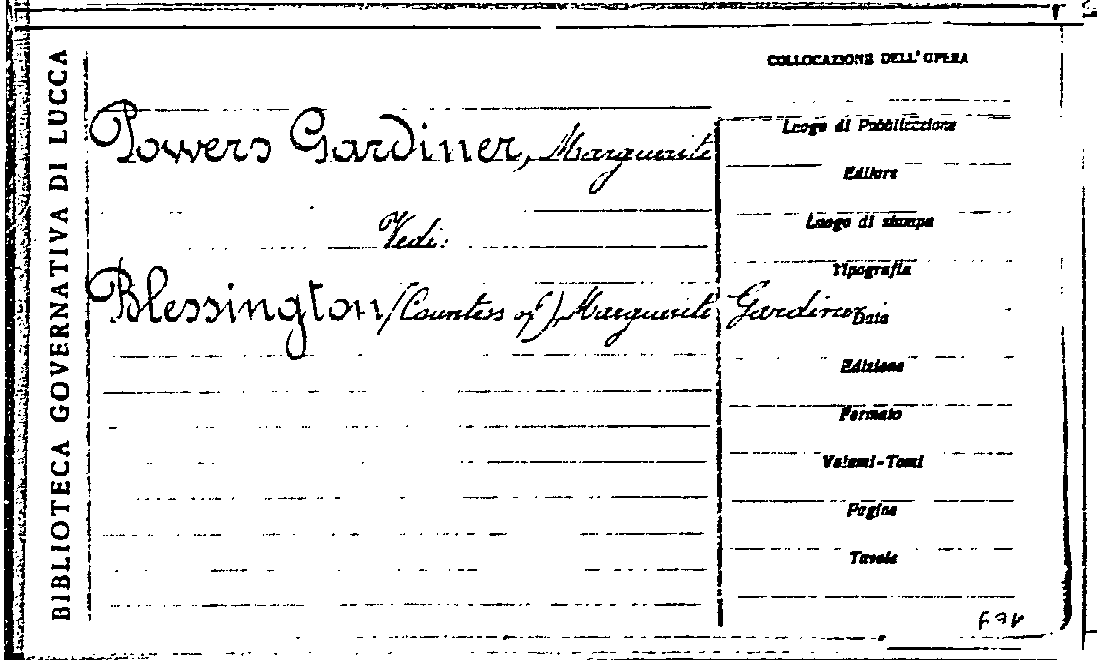 BIBLIOTECA GOVERNATIVA DI LUCCA
COLLOCAZIONE DELL'OPERA
Powers Gardiner, Marguerite
Vedi:
Blessington (Countess of), Marguerite Gardiner
Luogo di Pubblicazione
Editore
Luogo di stampa
Tipografia
Data
Edizione
Formato
Volumi-Tomi
Pagine
Tavole